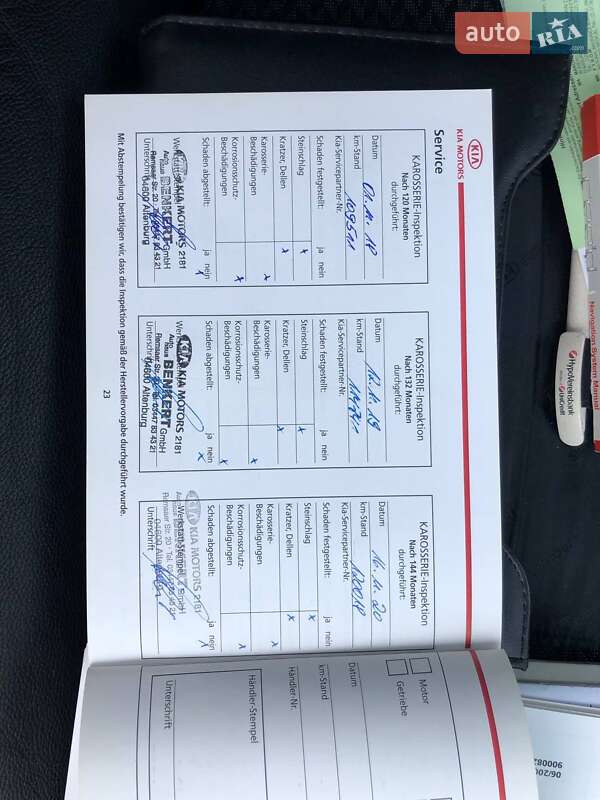 auto RIA .com
KIA
KIA MOTORS
Service
KAROSSERIE-Inspektion
Nach 120 Monaten
durchgeführt:
Datum 01.11.18
km-Stand
Kia-Servicepartner-Nr.
Schaden festgestellt: ja nein
Steinschlag x
Kratzer, Dellen x
Karosserie-
Beschädigungen x
Korrosionsschutz-
Beschädigungen x
Schaden abgestellt: ja nein
x
KIA MOTORS 2181
Auto
Haus BENKERT GmbH
Remsaer Str. 20
04600 Altenburg
Unterschrift
KAROSSERIE-Inspektion
Nach 132 Monaten
durchgeführt:
Datum
km-Stand
Kia-Servicepartner-Nr.
Schaden festgestellt: ja nein
Steinschlag x
Kratzer, Dellen x
Karosserie-
Beschädigungen x
Korrosionsschutz-
Beschädigungen x
Schaden abgestellt: ja nein
x
KIA MOTORS 2181
Auto
Haus BENKERT GmbH
Remsaer Str. 20 Tel. 03447 83 43 21
04600 Altenburg
Unterschrift
KAROSSERIE-Inspektion
Nach 144 Monaten
durchgeführt:
Datum 16.11.20
km-Stand
Kia-Servicepartner-Nr.
Schaden festgestellt: ja nein
Steinschlag x
Kratzer, Dellen x
Karosserie-
Beschädigungen x
Korrosionsschutz-
Beschädigungen x
Schaden abgestellt: ja nein
x
KIA MOTORS 2181
Werkstattstempel
Remsaer Str. 20
04600 Altenburg
Unterschrift
Mit Abstempelung bestätigen wir, dass die Inspektion gemäß der Herstellervorgabe durchgeführt wurde.
23
Motor
Getriebe
Datum
km-Stand
Händler-Nr.
Händler-Stempel
Unterschrift
Navigation System Manual
HypoVereinsbank
UniCredit